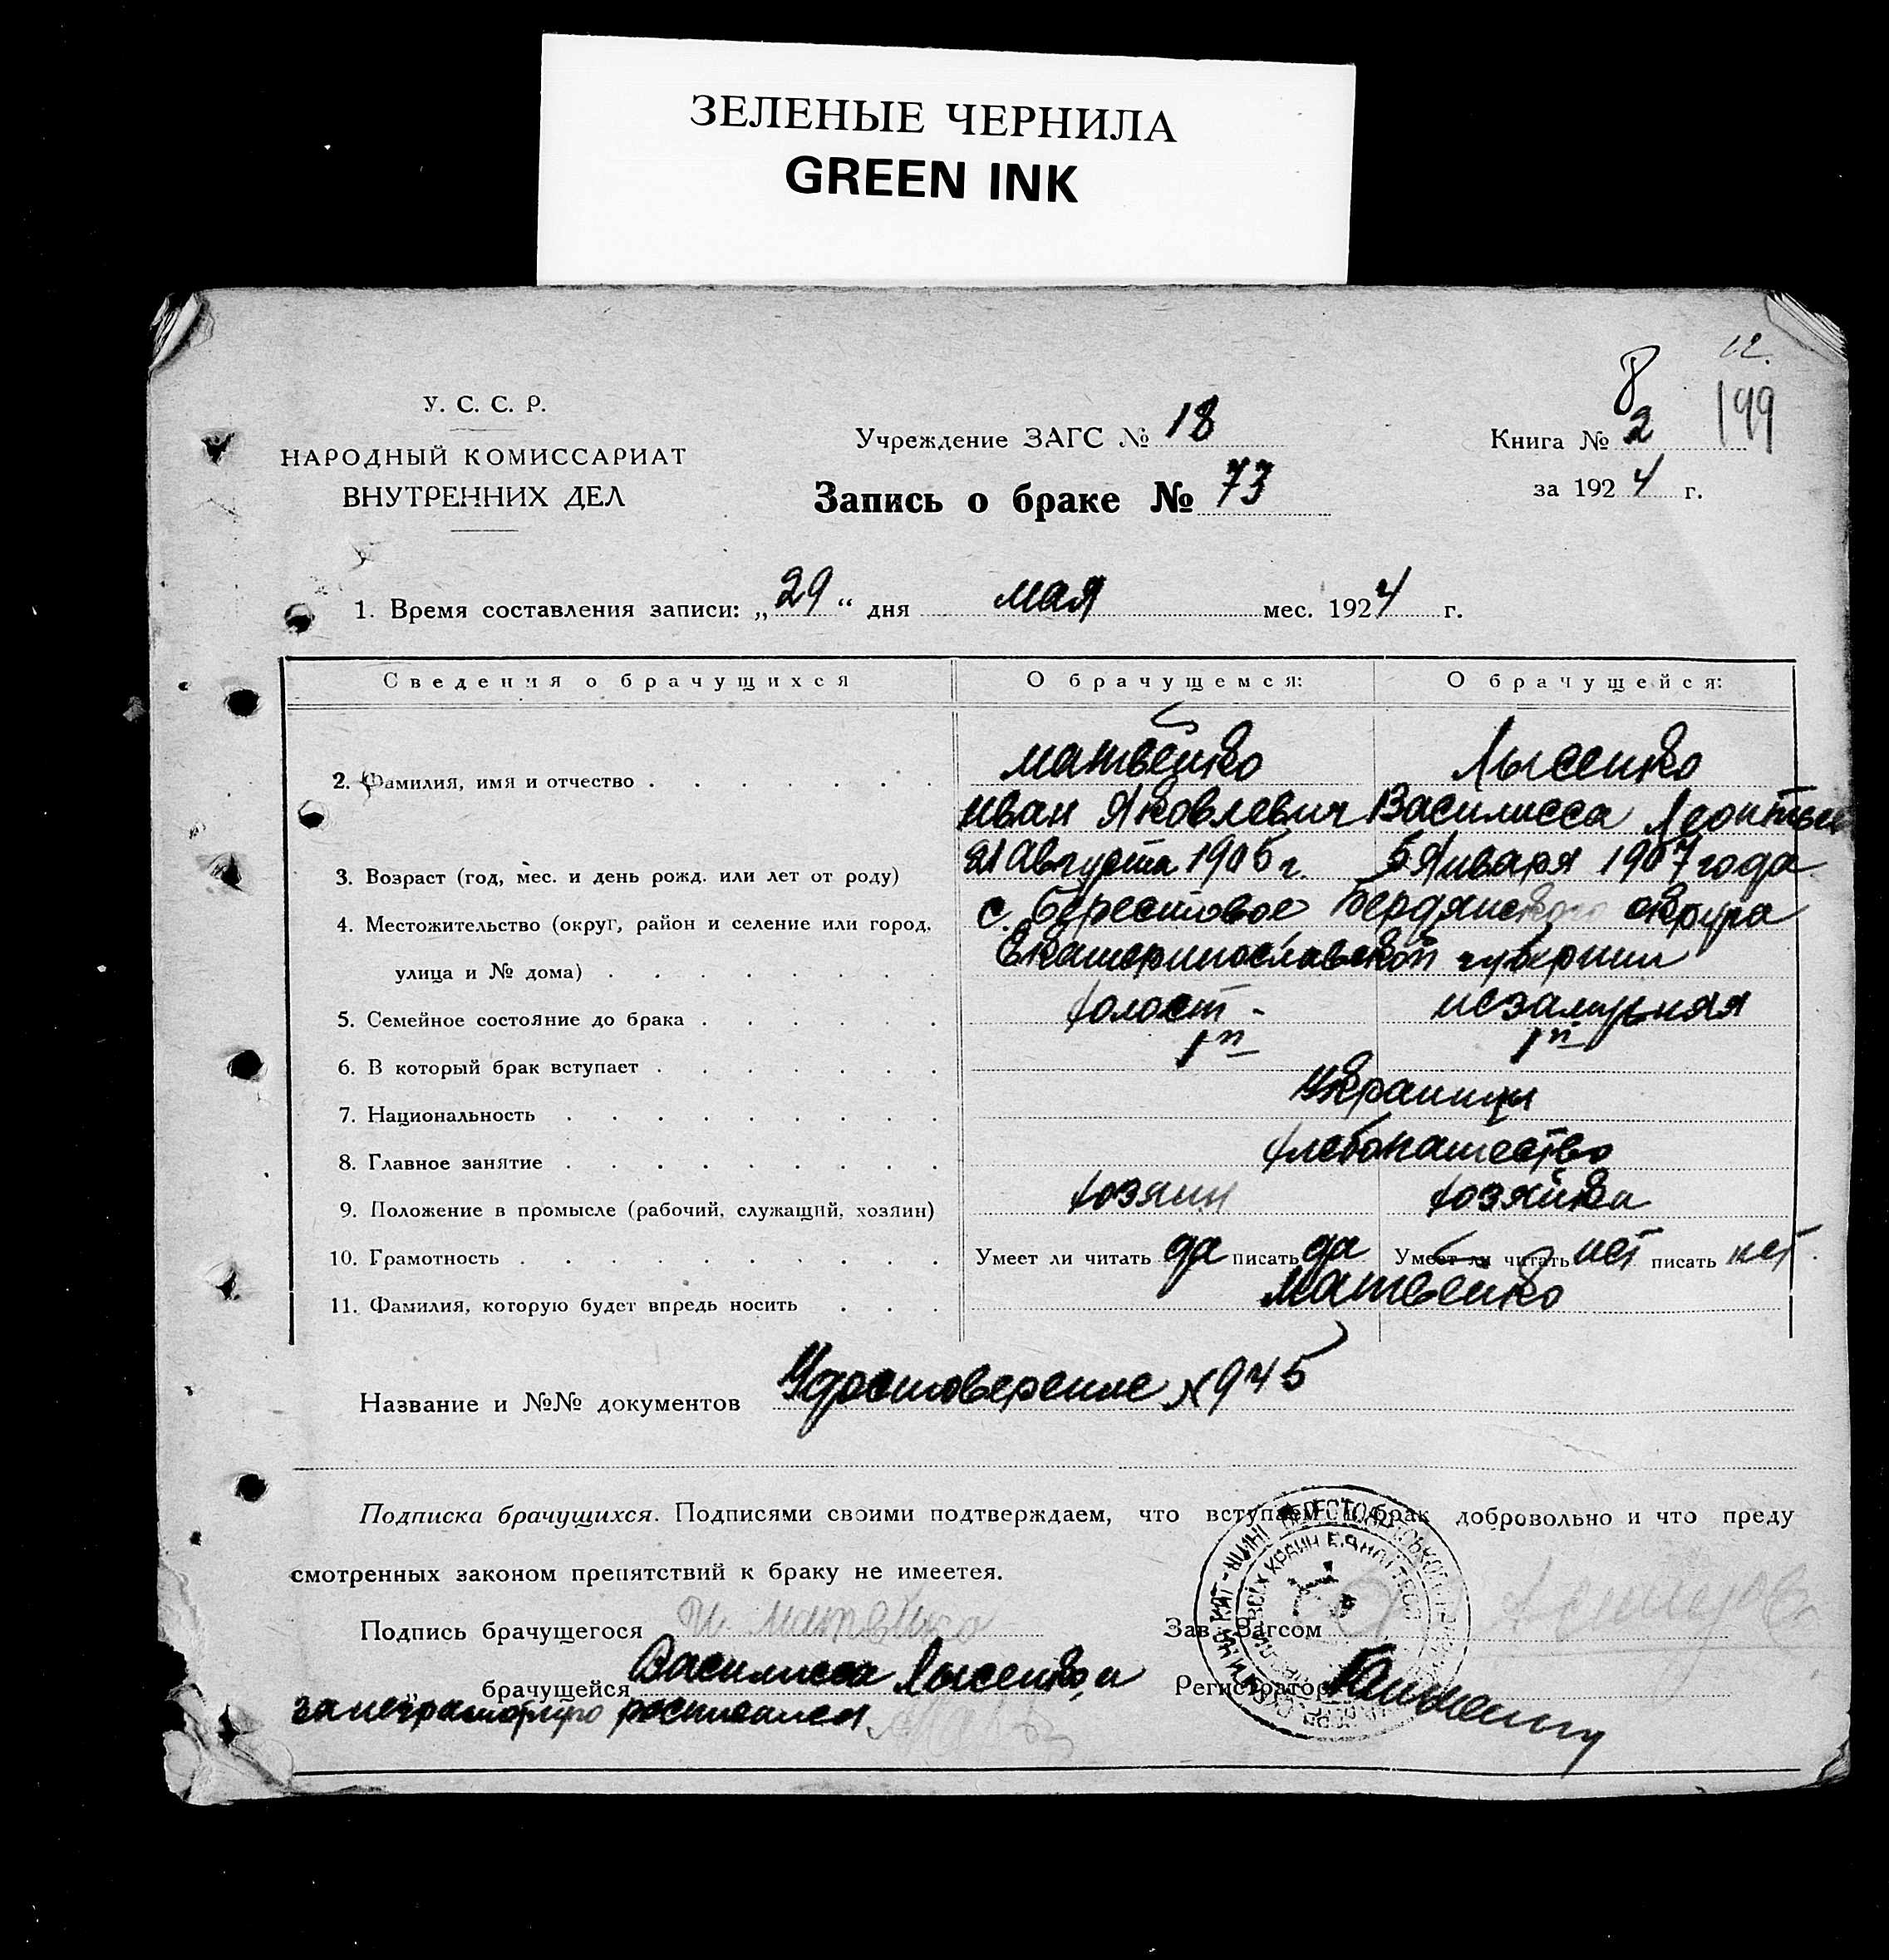 ЗЕЛЕНЫЕ ЧЕРНИЛА
GREEN INK
12.
8
199
У. С. С. Р.
НАРОДНЫЙ КОМИССАРИАТ
ВНУТРЕННИХ ДЕЛ
Учреждение ЗАГС № 18
Книга № 2
Запись о браке № 73
за 1924 г.
1. Время составления записи: „29“ дня мая мес. 1924 г.
Сведения о брачущихся О брачущемся: О брачущейся:
2. Фамилия, имя и отчество Матвейко Лысенко
Иван Яковлевич Василисса
3. Возраст (год, мес. и день рожд. или лет от роду) 21 Августа 1905 г. 5 Января 1907 года
4. Местожительство (округ, район и селение или город, с. Берестовое Бердянского округа
улица и № дома) Екатеринославской губернии
5. Семейное состояние до брака холост - незамужняя
6. В который брак вступает 1й 1й
7. Национальность Украинцы
8. Главное занятие хлебопашество
9. Положение в промысле (рабочий, служащий, хозяин) хозяин хозяйка
10. Грамотность Умеет ли читать да писать да Умеет ли читать нет писать нет.
11. Фамилия, которую будет впредь носить Матвейко
Название и №№ документов Удостоверение № 945
Подписка брачущихся. Подписями своими подтверждаем, что вступаем в брак добровольно и что преду
смотренных законом препятствий к браку не имеется.
Подпись брачущегося И. Матвейко Зав. Загсом
„ брачущейся Василисса Лысенко, а Регистратор
за неграмотную росписался